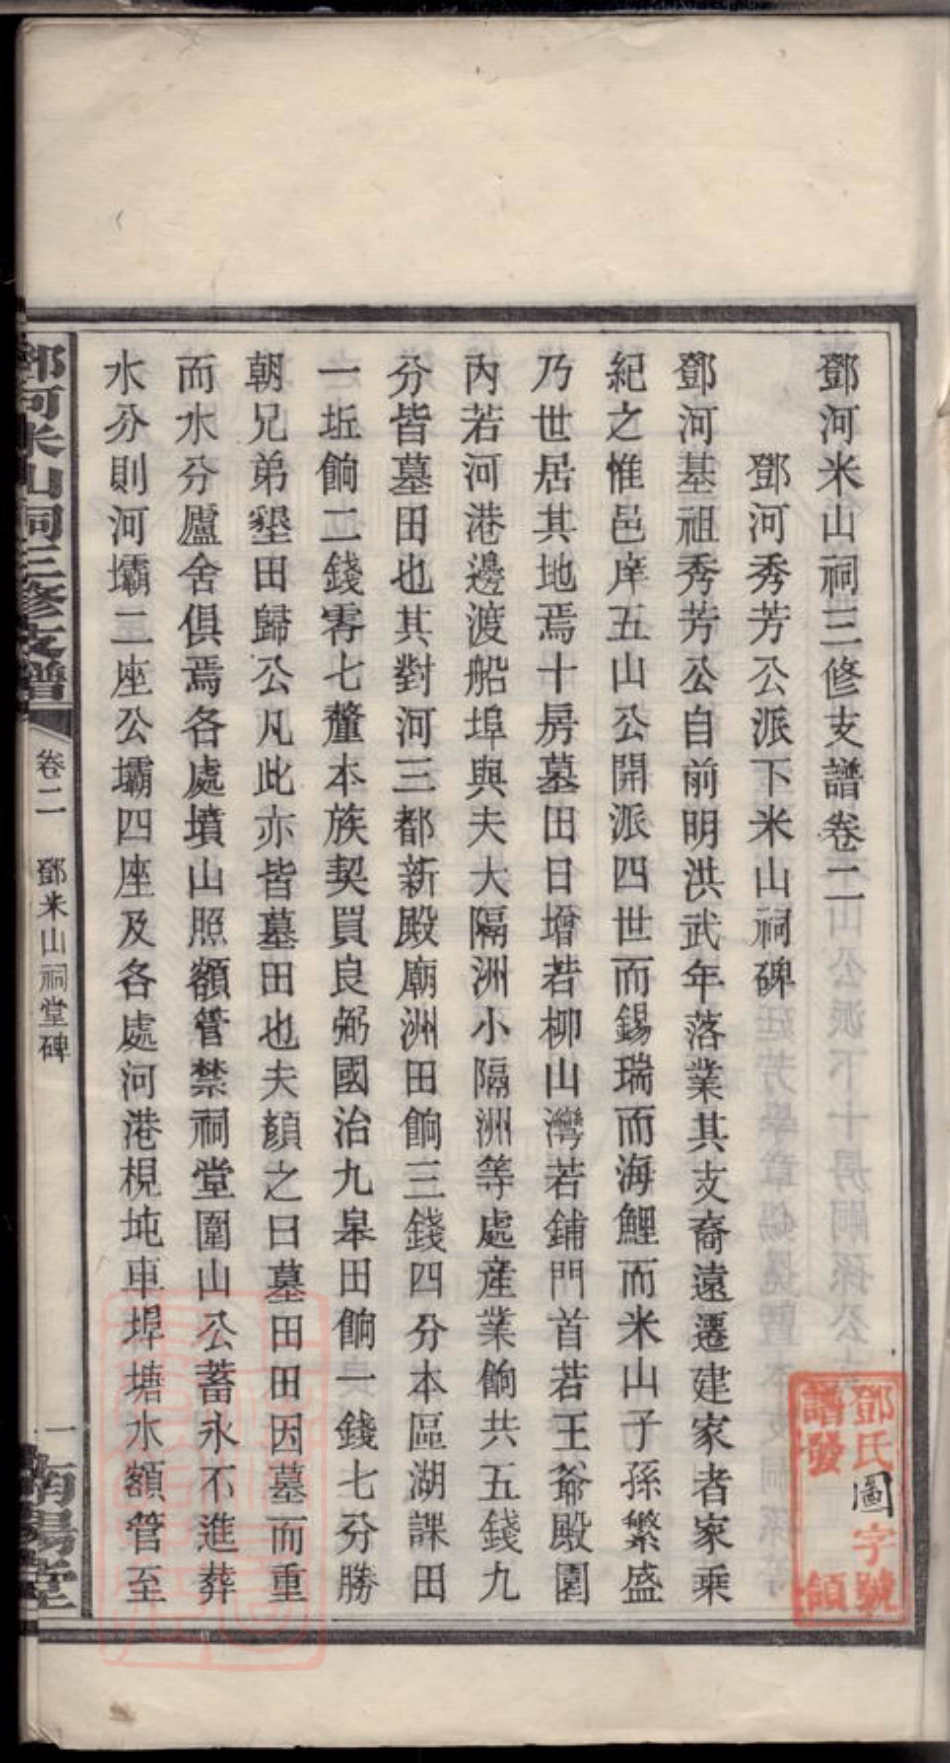 鄧河米山祠三修支譜卷二
鄧河秀芳公派下米山祠碑
鄧河基祖秀芳公自前明洪武年落業其支裔遠遷建家者家乘
紀之惟邑庠五山公開派四世而錫瑞而海鯉而米山子孫繁盛
乃世居其地焉十房墓田日增若柳山灣若鋪門首若王爺殿園
內若河港邊渡船埠與夫大隔洲小隔洲等處產業餉共五錢九
分皆墓田也其對河三都新殿廟洲田餉三錢四分本區湖課田
一坵餉二錢零七釐本族契買良弼國治九皋田餉一錢七分勝
朝兄弟墾田歸公凡此亦皆墓田也夫顏之曰墓田田因墓而重
而水分廬舍俱焉各處墳山照額管禁祠堂圍山公蓄永不進葬
水分則河壩二座公壩四座及各處河港梘坉車埠塘水額管至
鄧河米山祠三修支譜
卷二
鄧米山祠堂碑
一
南陽堂
鄧氏圖字號
譜發領